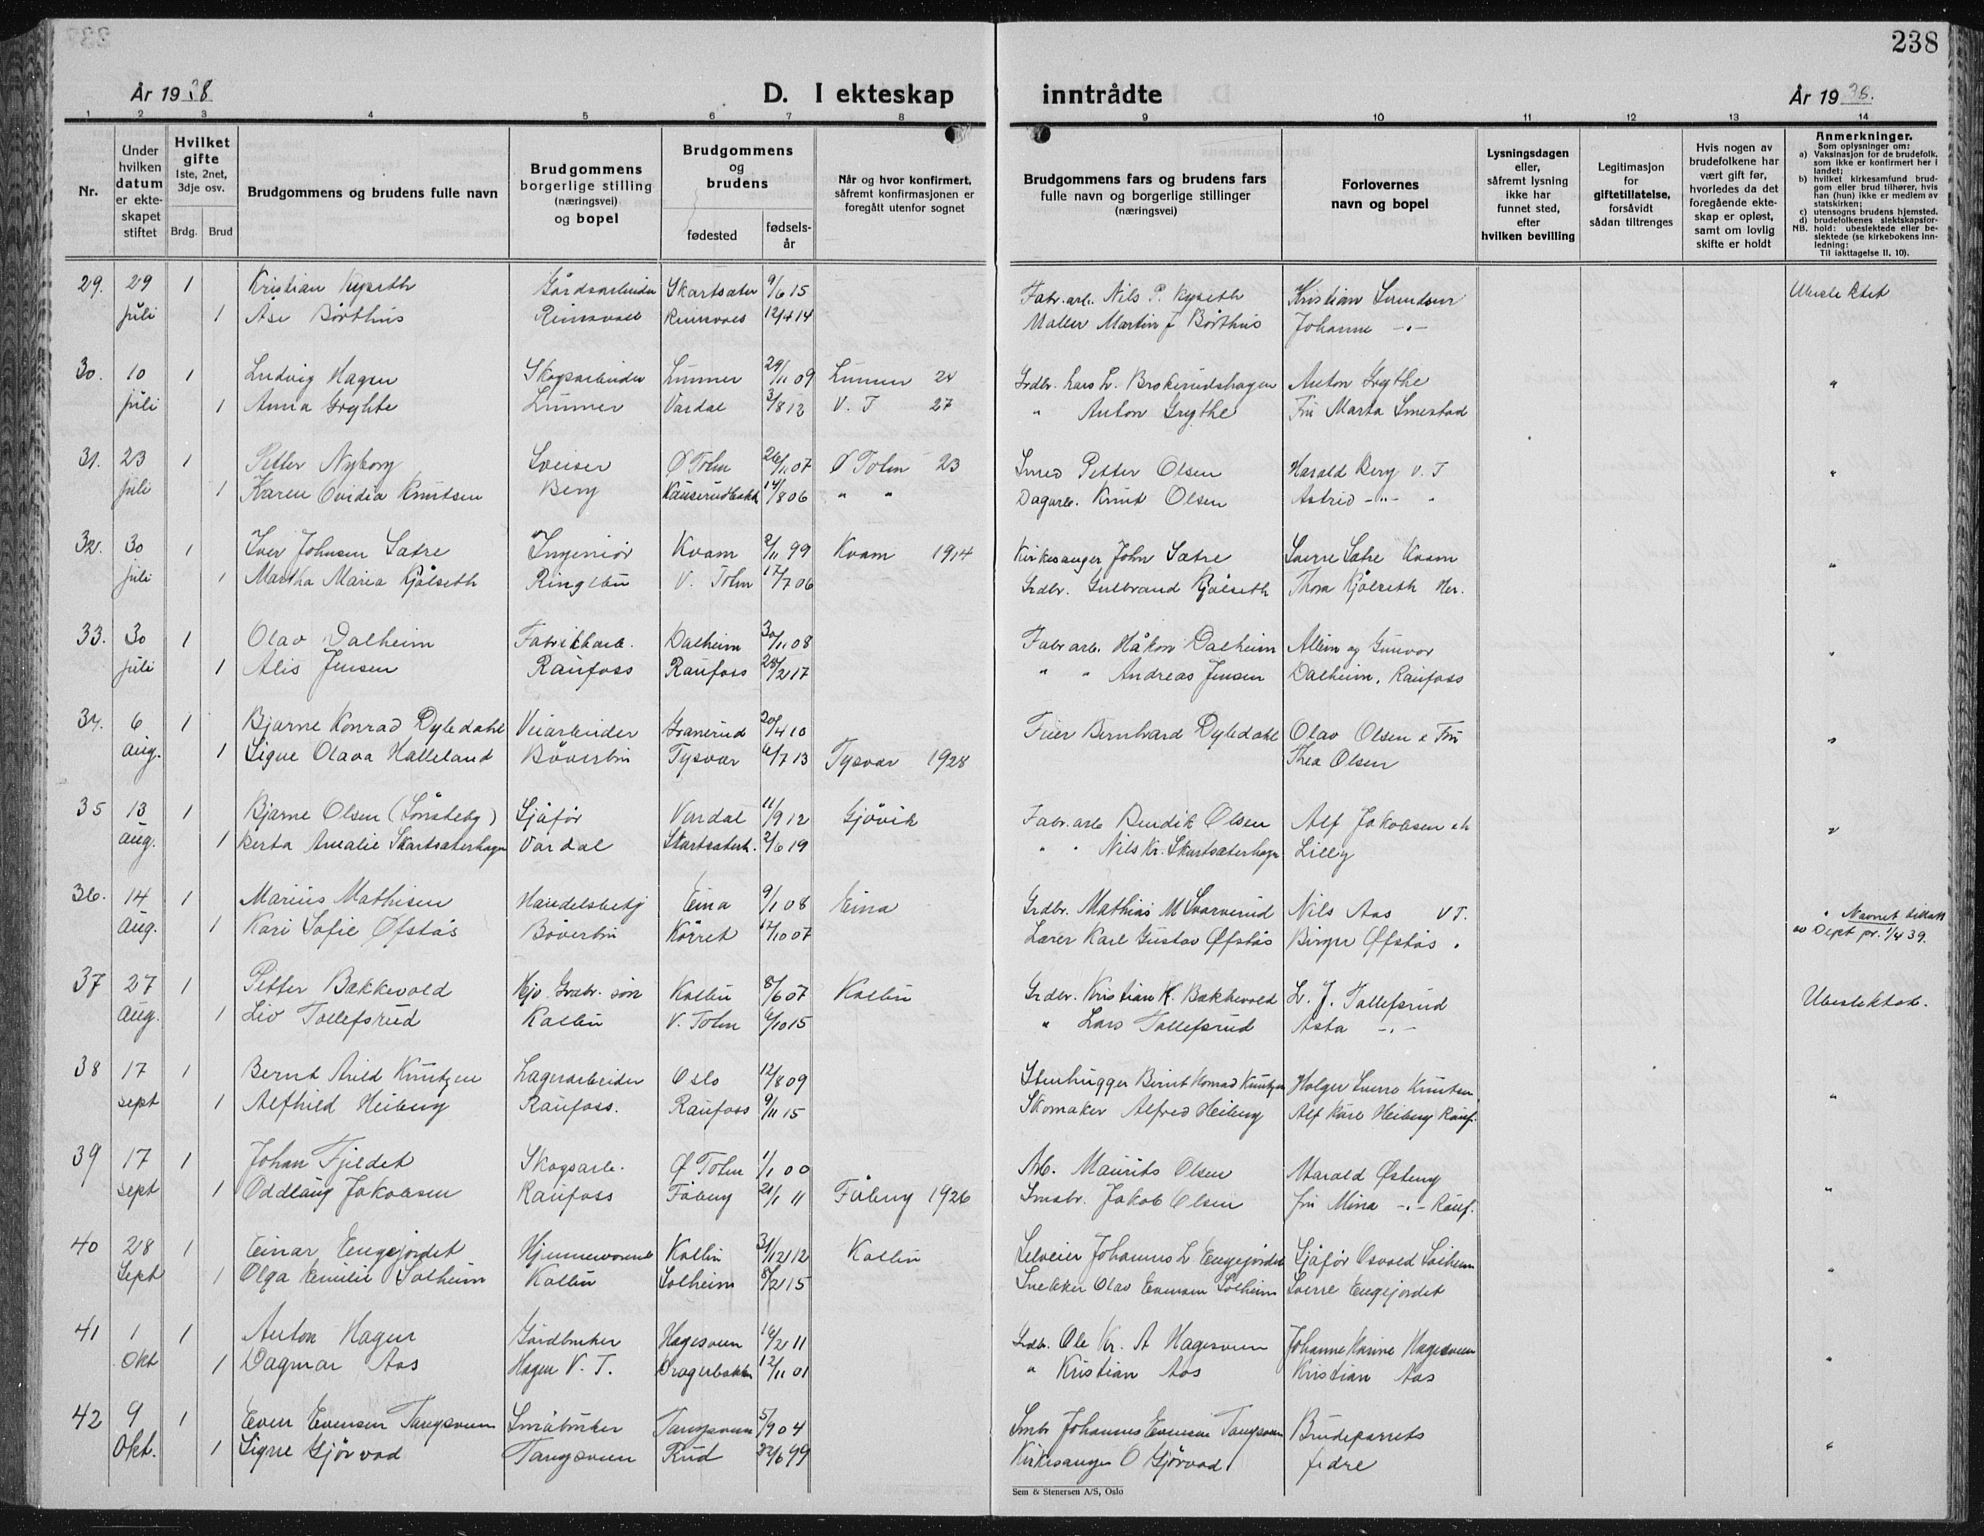 238
År 1938
D. I ekteskap inntrådte
År 1938.
1 2 3 4 5 6 7 8 9 10 11 12 13 14
Nr.
Under hvilken datum er ekteskapet stiftet
Hvilket gifte 1ste, 2net, 3dje osv.
Brdg. Brud
Brudgommens og brudens fulle navn
Brudgommens borgerlige stilling (næringsvei) og bopel
Brudgommens og brudens
fødested
fødselsår
Når og hvor konfirmert, såfremt konfirmasjonen er foregått utenfor sognet
Brudgommens fars og brudens fars fulle navn og borgerlige stillinger (næringsvei)
Forlovernes navn og bopel
Lysningsdagen eller, såfremt lysning ikke har funnet sted, efter hvilken bevilling
Legitimasjon for giftetillatelse, forsåvidt sådan tiltrenges
Hvis nogen av brudefolkene har vært gift før, hvorledes da det foregående ekteskap er opløst, samt om lovlig skifte er holdt
Anmerkninger.
Som oplysninger om:
a) Vaksinasjon for de brudefolk, som ikke er konfirmert her i landet;
b) hvilket kirkesamfund brudgom eller brud tilhører, hvis han (hun) ikke er medlem av statskirken;
c) utensogns brudens hjemsted.
d) brudefolkenes slektskapsforhold: ubeslektede eller beslektede (se kirkebokens innledning:
NB.
Til iakttagelse II, 10).
29. 29 1 Kristian Kyseth Gårdsarbeider Skartsater 9/6 15 Fabr.arb. Nils P. Kyseth Kristian Ubeslektet
juli 1 Åse Børthus Reinsvoll Reinsvoll 12/4 14 Maller Martin J Børthus Johanne -"-
30. 10 1 Ludvig Hagen Skogsarbeider Lunner 29/11 09 Lunner 24 Grdbr. Lars L. Brokerudshagen Anton Grythe "
juli 1 Anna Grythe Lunner Vardal 3/8 12 V. T 27 " Anton Grythe Fru Marta Smestad
31. 23 1 Petter Nyborg Sveiser Ø Toten 26/11 07 Ø Toten 23 Smed Petter Olsen Harald Berg V. T "
juli 1 Karen Ovidia Knutsen Berg 14/8 06 " " Dagarb. Knut Olsen Astrid -"- "
32. 30 1 Iver Johnsen Sætre Ingeniør Kvam 2/11 99 Kvam 1914 Kirkesanger John Sætre Sverre Sætre Kvam "
juli 1 Martha Maria Kjølseth Ringebu V. Toten 17/7 06 Grdbr. Gulbrand Kjølseth Thora Kjølseth Her.
33. 30 1 Olav Dalheim Fabrikkarb. Dalheim 30/11 08 Fabr arb. Håkon Dalheim og Gunvor "
juli 1 Alis Jensen Raufoss Raufoss 28/2 17 " " Andreas Jensen Dalheim, Raufoss
34. 6 1 Bjarne Konrad Dyledahl Veiarbeider Granerud 20/4 10 Feier Bernhard Dyledahl Olav Olsen & Fru "
aug. 1 Signe Olava Halleland Bøverbru Tysvær 6/7 13 Tysvær 1928 Thea Olsen
35 13 1 Bjarne Olsen (Sønsteby) Sjåfør Vardal 11/9 12 Gjøvik Fabr.arb Bendik Olsen Alf Jakobsen "
aug. 1 Berta Amalie Skartsæterhagen Vardal Skartsæterh. 2/6 19 " " Nils Kr. Skartsæterhagen Lilly
36. 14 1 Marius Mathisen Handelsbetj Eina 9/1 08 Eina Grdbr. Mathias M Svarverud Nils Aas VT. " Navnet tillatt
Aug. 1 Kari Sofie Øfstås Bøverbru Kørret 17/10 07 Lærer Karl Gustav Øfstås Birger Øfstås " av Dept pr. 1/4 39.
37 27 1 Petter Bakkevold Hjv. Grdbr. søn Kolbu 8/6 07 Kolbu Grdbr. Kristian K. Bakkevold L. J. Tollefsrud Ubeslektet.
Aug. 1 Liv Tollefsrud Kolbu V. Toten 6/10 15 " Lars Tollefsrud Asta -"-
38 17 1 Bernt Arild Knutzen Lagerarbeider Oslo 12/8 09 Stenhugger Bernt Konrad Knutzen Holger Knutzen "
sept 1 Alfhild Heiberg Raufoss. Raufoss 9/11 15 Skomaker Alfred Heiberg Alf Karl Heiberg Rauf.
39 17 1 Johan Fjeldet Skogsarb. Ø Toten 1/1 00 Arb. Maurits Olsen Harald Østeng "
sept 1 Oddlaug Jakobsen Raufoss Fåberg 21/1 11 Fåberg 1926 Småbr. Jakob Olsen fru Mina -"- Rauf.
40 28 1 Einar Engejordet Hjemmeværende Kolbu 31/12 12 Kolbu Selveier Johannes L Engejordet Sjåfør Osvald Solheim "
Sept 1 Olga Emilie Solheim Kolbu Solheim 8/2 15 Snekker Olav Evensen Solheim Sverre Engejordet
41 1 1 Anton Hagen Gårdbruker Hagesveen 16/2 11 Grdbr. Ole Kr. A Hagesveen Johanne Karine Hagesveen "
Okt 1 Dagmar Aas Hagen V. T. Kragerbakken 12/11 01 " Kristian Aas Kristian Aas
42 9 1 Even Evensen Tangsveen Småbruker Tangsveen 5/9 04 Smbr Johannes Evensen Tangsveen Brudeparrets "
Okt. 1 Signe Gjørvad Tangsveen Rud 22/6 99 Kirkesanger O Gjørvad fedre
Sem & Stenersen A/S, Oslo